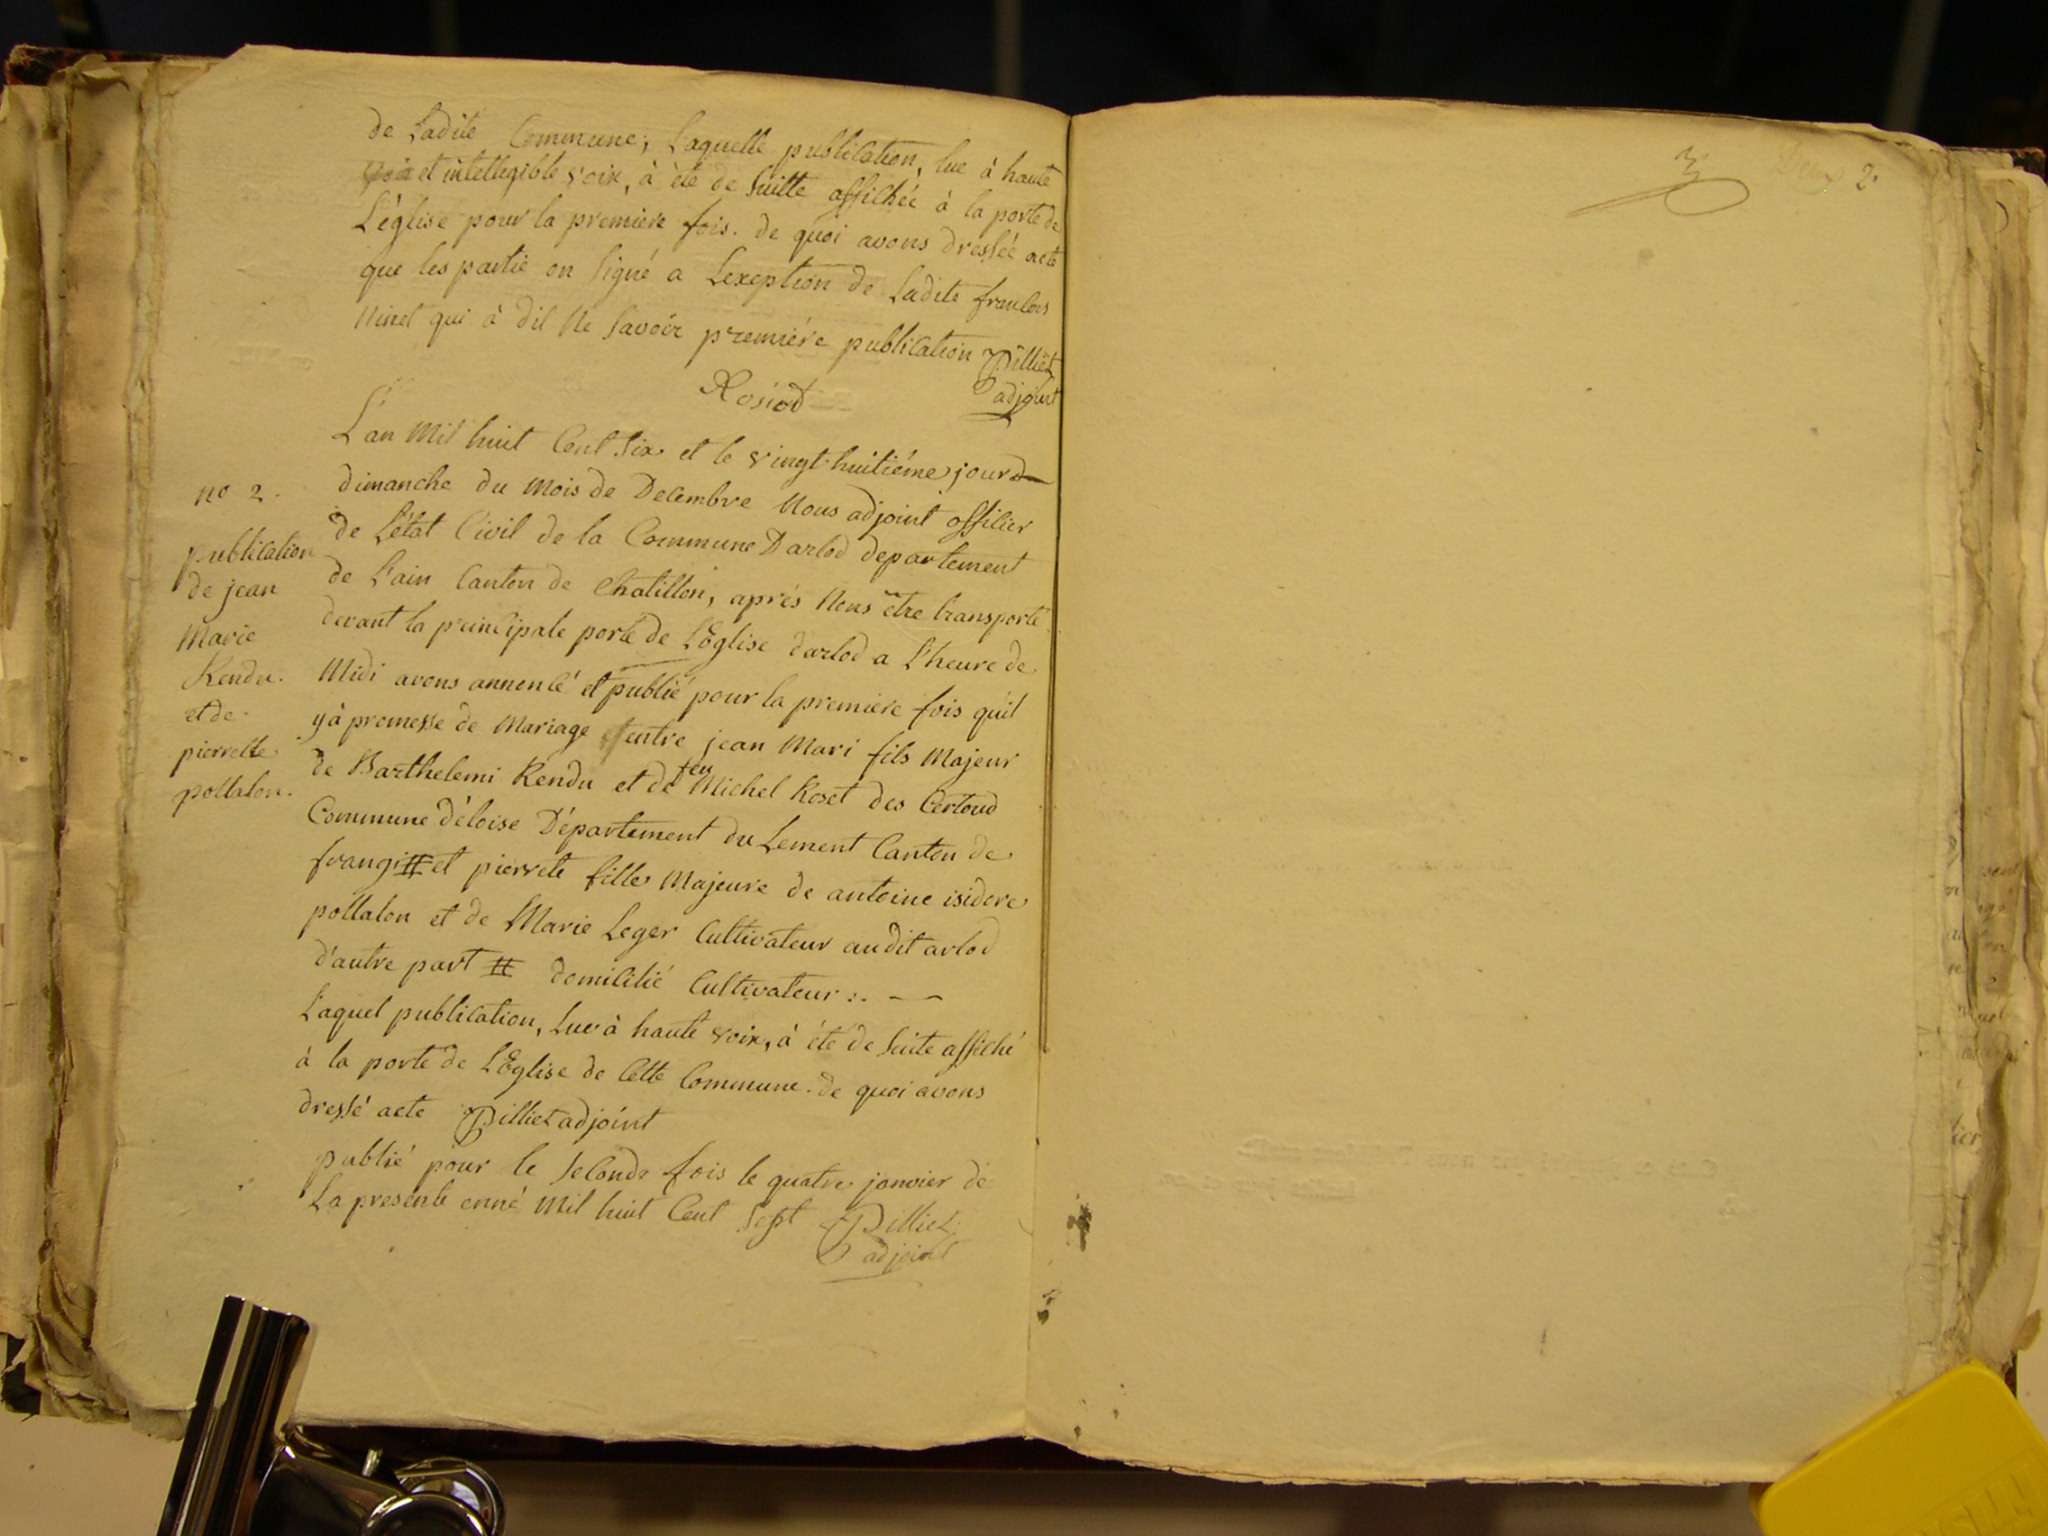 de Ladite Commune, Laquelle publication, lue à haute
et intellegible voix, à été de Suitte affichée à la porte de
L'église pour la premiere fois. de quoi avons dressée acte
que les partie on Signé a Lexeption de Ladite
Ninet qui à dit Ne Savoir première publication Pilliet
Rosiod adjoint
L'an Mil huit Cent Six et le vingt huitiéme jour
dimanche du Mois de Decembre Nous adjoint officier
de L'état Civil de la Commune Darlod departement
de L'ain Canton de Chatillon, aprés Nous être transporté
devant la principale porte de L'Eglise darlod a L'heure de
Midi avons annoncé et publié pour la premiere fois qu'il
y à promesse de Mariage entre jean Mari fils Majeur
de Barthelemi Rendu et de feu Michel Roset des Certoud
Commune d'éloise Département du Lement Canton de
frangi # et pierrete fille Majeure de antoine isidore
pollalon et de Marie Leger Cultivateur audit arlod
d'autre part # domicilié Cultivateur :. —
Laquel publication, Lue à haute voix, à été de Suite affiché
à la porte de L'Eglise de Cette Commune. de quoi avons
dressé acte Pilliet adjoint
publié pour le Seconde fois le quatre janvier de
La presente enné Mil huit Cent Sept Pilliet
adjoint
no 2.
publication
de jean
Marie
Rendu.
et de
pierrette
pollalon.
Deux 2.